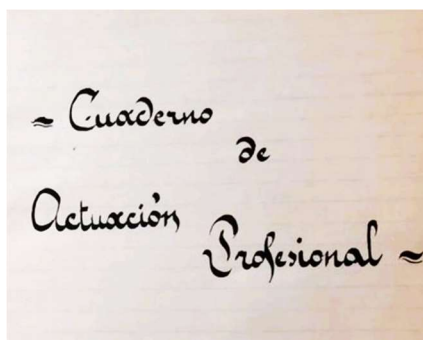 ~ Cuaderno
de
Actuación
Profesional ~